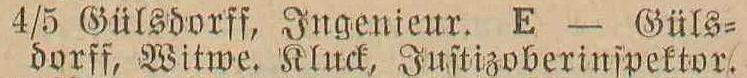 4/5 Gülsdorff, Ingenieur. E — Güls-
dorff, Witwe. Kluck, Justizoberinspektor.